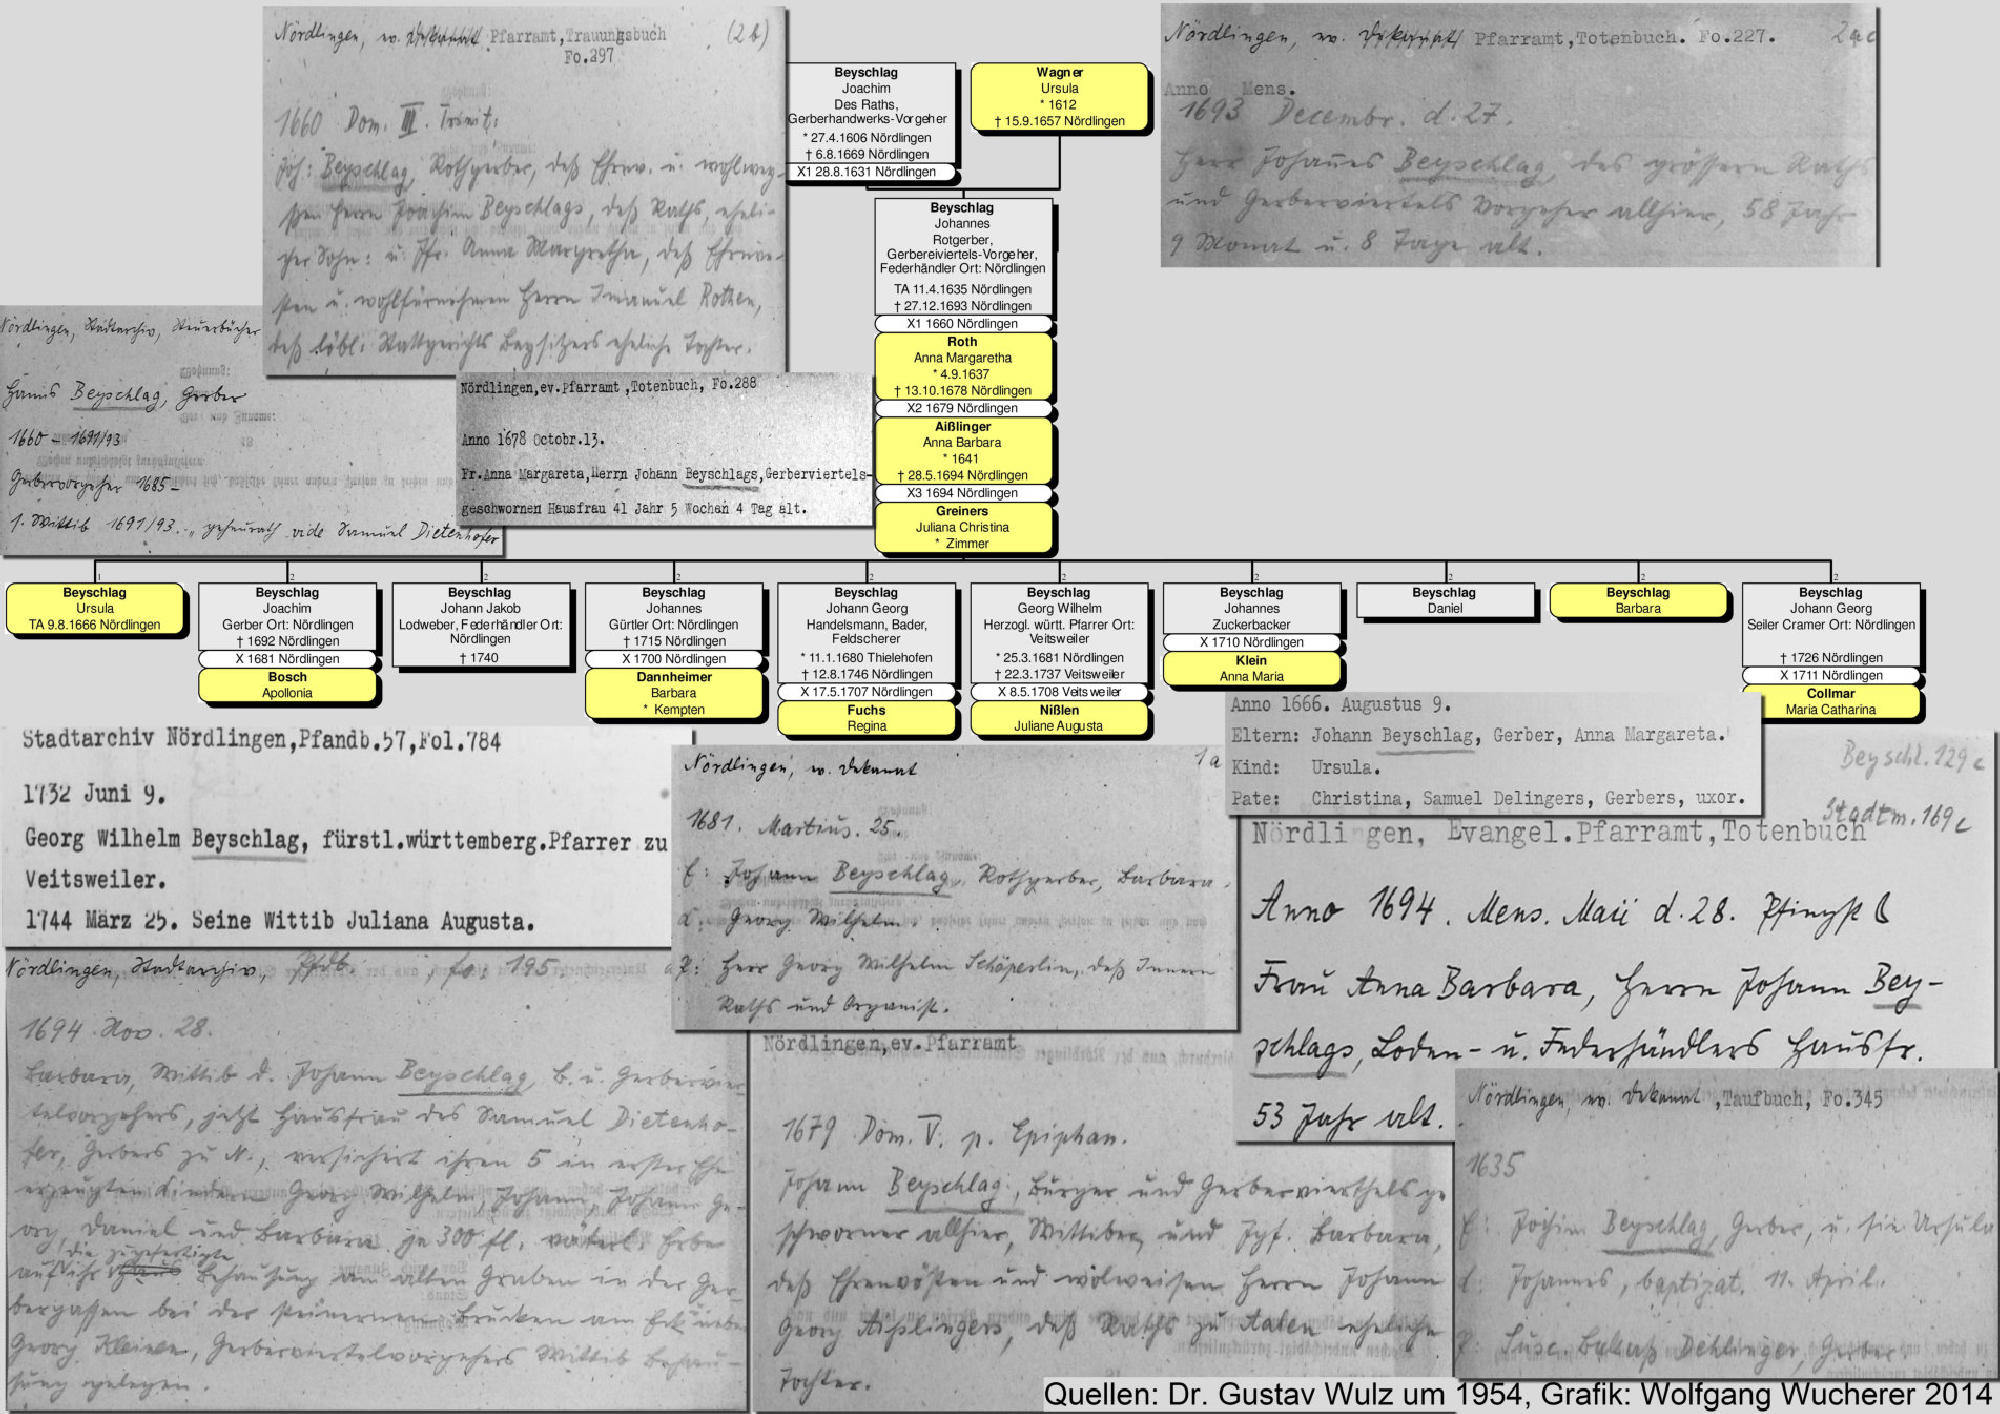 Nördlingen, ev. Dekanat Pfarramt,Trauungsbuch (2b)
Fo.297
1660 Dom. III. Trinit:
Joh: Beyschlag, Rothgerber, deß Ehrnv. u. wohlwey-
ßen Herrn Joachim Beyschlags, deß Raths, eheli-
cher Sohn: u. Jfr. Anna Margretha, deß Ehrnve-
sten u. wohlfürnehmen Herrn Imanuel Rothen,
deß löbl: Stattgerichts Beysitzers eheliche Tochter.
Beyschlag
Joachim
Des Raths,
Gerberhandwerks-Vorgeher
* 27.4.1606 Nördlingen
† 6.8.1669 Nördlingen
X1 28.8.1631 Nördlingen
Wagner
Ursula
* 1612
† 15.9.1657 Nördlingen
Nördlingen, ev. Dekanat Pfarramt,Totenbuch. Fo.227. 2ac
Anno Mens.
1693 Decembr. d. 27.
Herr Johannes Beyschlag, des grössern Raths
und Gerberviertels Vorgeher allhier, 58 Jahr
9 Monat u. 8 Tage alt.
Beyschlag
Johannes
Rotgerber,
Gerbereiviertels-Vorgeher,
Federhändler Ort: Nördlingen
TA 11.4.1635 Nördlingen
† 27.12.1693 Nördlingen
X1 1660 Nördlingen
Roth
Anna Margaretha
* 4.9.1637
† 13.10.1678 Nördlingen
X2 1679 Nördlingen
Aißlinger
Anna Barbara
* 1641
† 28.5.1694 Nördlingen
X3 1694 Nördlingen
Greiners
Juliana Christina
* Zimmer
Nördlingen, Stadtarchiv, Steuerbücher
Hanns Beyschlag, Gerber
1660 - 1691/93
Gerbervorgeher 1685 -
s. Wittib 1691/93 - geheurath vide Samuel Dietenhofer
Nördlingen,ev.Pfarramt,Totenbuch, Fo.288
Anno 1678 Octobr.13.
Fr.Anna Margareta,Herrn Johann Beyschlags,Gerberviertels-
geschwornen Hausfrau 41 Jahr 5 Wochen 4 Tag alt.
1
Beyschlag
Ursula
TA 9.8.1666 Nördlingen
2
Beyschlag
Joachim
Gerber Ort: Nördlingen
† 1692 Nördlingen
X 1681 Nördlingen
Bosch
Apollonia
2
Beyschlag
Johann Jakob
Lodweber, Federhändler Ort:
Nördlingen
† 1740
2
Beyschlag
Johannes
Gürtler Ort: Nördlingen
† 1715 Nördlingen
X 1700 Nördlingen
Dannheimer
Barbara
* Kempten
2
Beyschlag
Johann Georg
Handelsmann, Bader,
Feldscherer
* 11.1.1680 Thielehofen
† 12.8.1746 Nördlingen
X 17.5.1707 Nördlingen
Fuchs
Regina
2
Beyschlag
Georg Wilhelm
Herzogl. württ. Pfarrer Ort:
Veitsweiler
* 25.3.1681 Nördlingen
† 22.3.1737 Veitsweiler
X 8.5.1708 Veitsweiler
Nißlen
Juliane Augusta
2
Beyschlag
Johannes
Zuckerbacker
X 1710 Nördlingen
Klein
Anna Maria
2
Beyschlag
Daniel
2
Beyschlag
Barbara
2
Beyschlag
Johann Georg
Seiler Cramer Ort: Nördlingen
† 1726 Nördlingen
X 1711 Nördlingen
Collmar
Maria Catharina
Anno 1666. Augustus 9.
Eltern: Johann Beyschlag, Gerber, Anna Margareta.
Kind: Ursula.
Pate: Christina, Samuel Delingers, Gerbers, uxor.
Stadtarchiv Nördlingen,Pfandb.57,Fol.784
1732 Juni 9.
Georg Wilhelm Beyschlag, fürstl.württemberg.Pfarrer zu
Veitsweiler.
1744 März 25. Seine Wittib Juliana Augusta.
Nördlingen, ev. Dekanat 1a
1681. Martius. 25.
E: Johann Beyschlag, Rothgerber, Barbara.
K: Georg Wilhelm.
P: Herr Georg Wilhelm Schöperlin, deß Innern
Raths und Organist.
Beyschl. 129 c
Stadtm. 169 c
Nördlingen, Evangel.Pfarramt,Totenbuch
Anno 1694. Mens. Maii d. 28. Pfingst
Frau Anna Barbara, Herrn Johann Bey-
schlags, Loden- u. Federhändlers Hausfr.
53 Jahr alt.
Nördlingen, Stadtarchiv, Pfdb. , fo: 195.
1694 Nov. 28.
Barbara, Wittib d. Johann Beyschlag, B. u. Gerbervier-
telvorgehers, jetzt Hausfrau des Samuel Dietenho-
fer, Gerbers zu N., versichert ihren 5 in erster Ehe
erzeugten Kindern Georg Wilhelm, Johann, Johann Ge-
org, Daniel und Barbara je 300 fl. väterl. Erbe
die zugefertigte
auf ihr Haus Behausung am alten Graben in der Ger-
bergassen bei der steinernen Brucken am Eck neben
Georg Kleinen, Gerberviertelvorgehers Wittib Behau-
sung gelegen.
Nördlingen,ev.Pfarramt
1679 Dom. V. p. Epiphan.
Johann Beyschlag, Burger und Gerbervierthels ge-
schworner allhier, Wittiber, und Jgf. Barbara,
deß Ehrenvösten und wolweisen Herrn Johann
Georg Aißlingers, deß Raths zu Aalen eheliche
Tochter.
Nördlingen, ev. Dekanat ,Taufbuch, Fo.345
1635
E: Jochim Beyschlag, Gerber, u. sie Ursula
K: Johannes, baptizat. 11. April.
P: Susc. Dehlinger, Gerber.
Quellen: Dr. Gustav Wulz um 1954, Grafik: Wolfgang Wucherer 2014